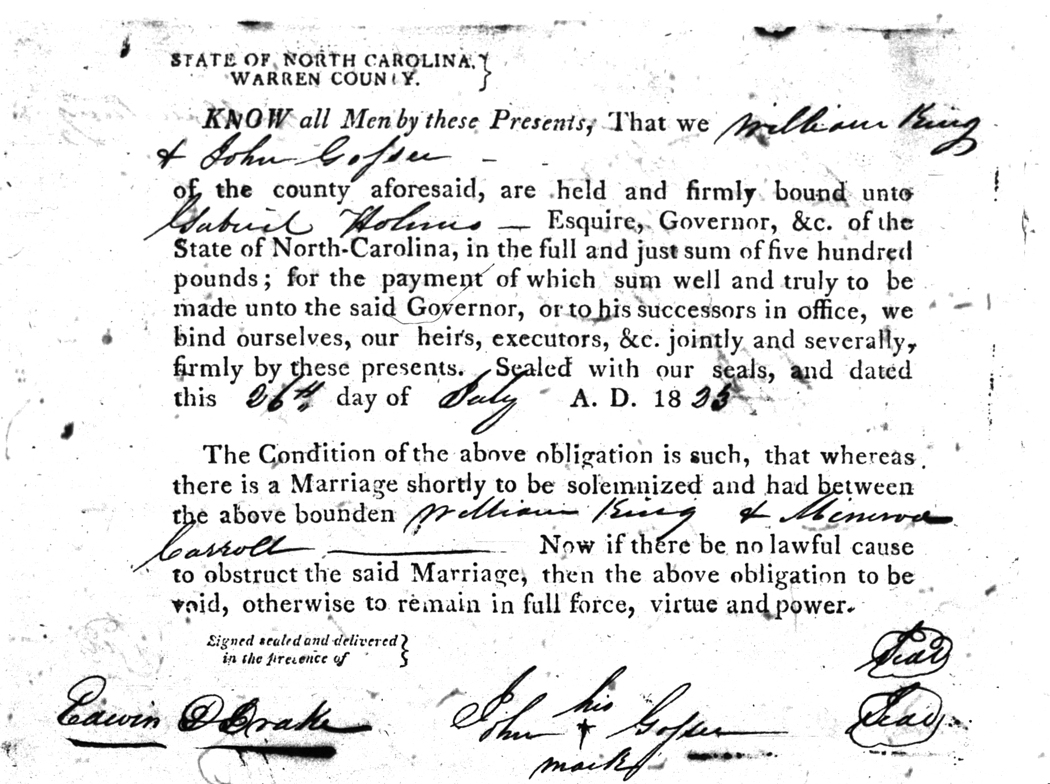 STATE OF NORTH CAROLINA,
WARREN COUNTY.
KNOW all Men by these Presents, That we William King
& John Gosser
of the county aforesaid, are held and firmly bound unto
Gabriel Holmes — Esquire, Governor, &c. of the
State of North-Carolina, in the full and just sum of five hundred
pounds; for the payment of which sum well and truly to be
made unto the said Governor, or to his successors in office, we
bind ourselves, our heirs, executors, &c. jointly and severally,
firmly by these presents. Sealed with our seals, and dated
this 26th day of July A. D. 1823
The Condition of the above obligation is such, that whereas
there is a Marriage shortly to be solemnized and had between
the above bounden William King & Minerva
Carroll — Now if there be no lawful cause
to obstruct the said Marriage, then the above obligation to be
void, otherwise to remain in full force, virtue and power.
Signed sealed and delivered
in the presence of
Seal
Edwin D Drake
John his Gosser
mark
Seal